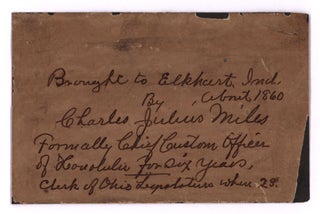 Brought to Elkhart, Ind.
By About 1860
Charles Julius Miles
Formally Chief Custom Officer
of Honolulu for six years,
Clerk of Ohio Legislature when 28.